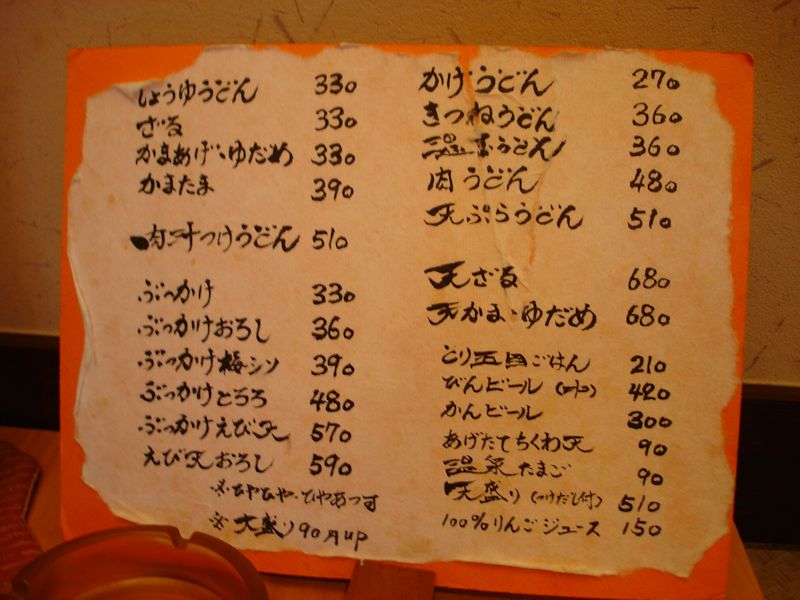 しょうゆうどん 330
ざる 330
かまあげ・ゆだめ 330
かまたま 390
肉汁つけうどん 510
ぶっかけ 330
ぶっかけおろし 360
ぶっかけ梅シソ 390
ぶっかけとろろ 480
ぶっかけえび天 570
えび天おろし 590
※ひやひや・ひやあつ可
※大盛り90円UP
かけうどん 270
きつねうどん 360
温玉うどん 360
肉うどん 480
天ぷらうどん 510
天ざる 680
天かま・ゆだめ 680
とり五目ごはん 210
びんビール (中) 420
かんビール 300
あげたてちくわ天 90
温泉たまご 90
天盛り (つけだし付) 510
100%りんごジュース 150